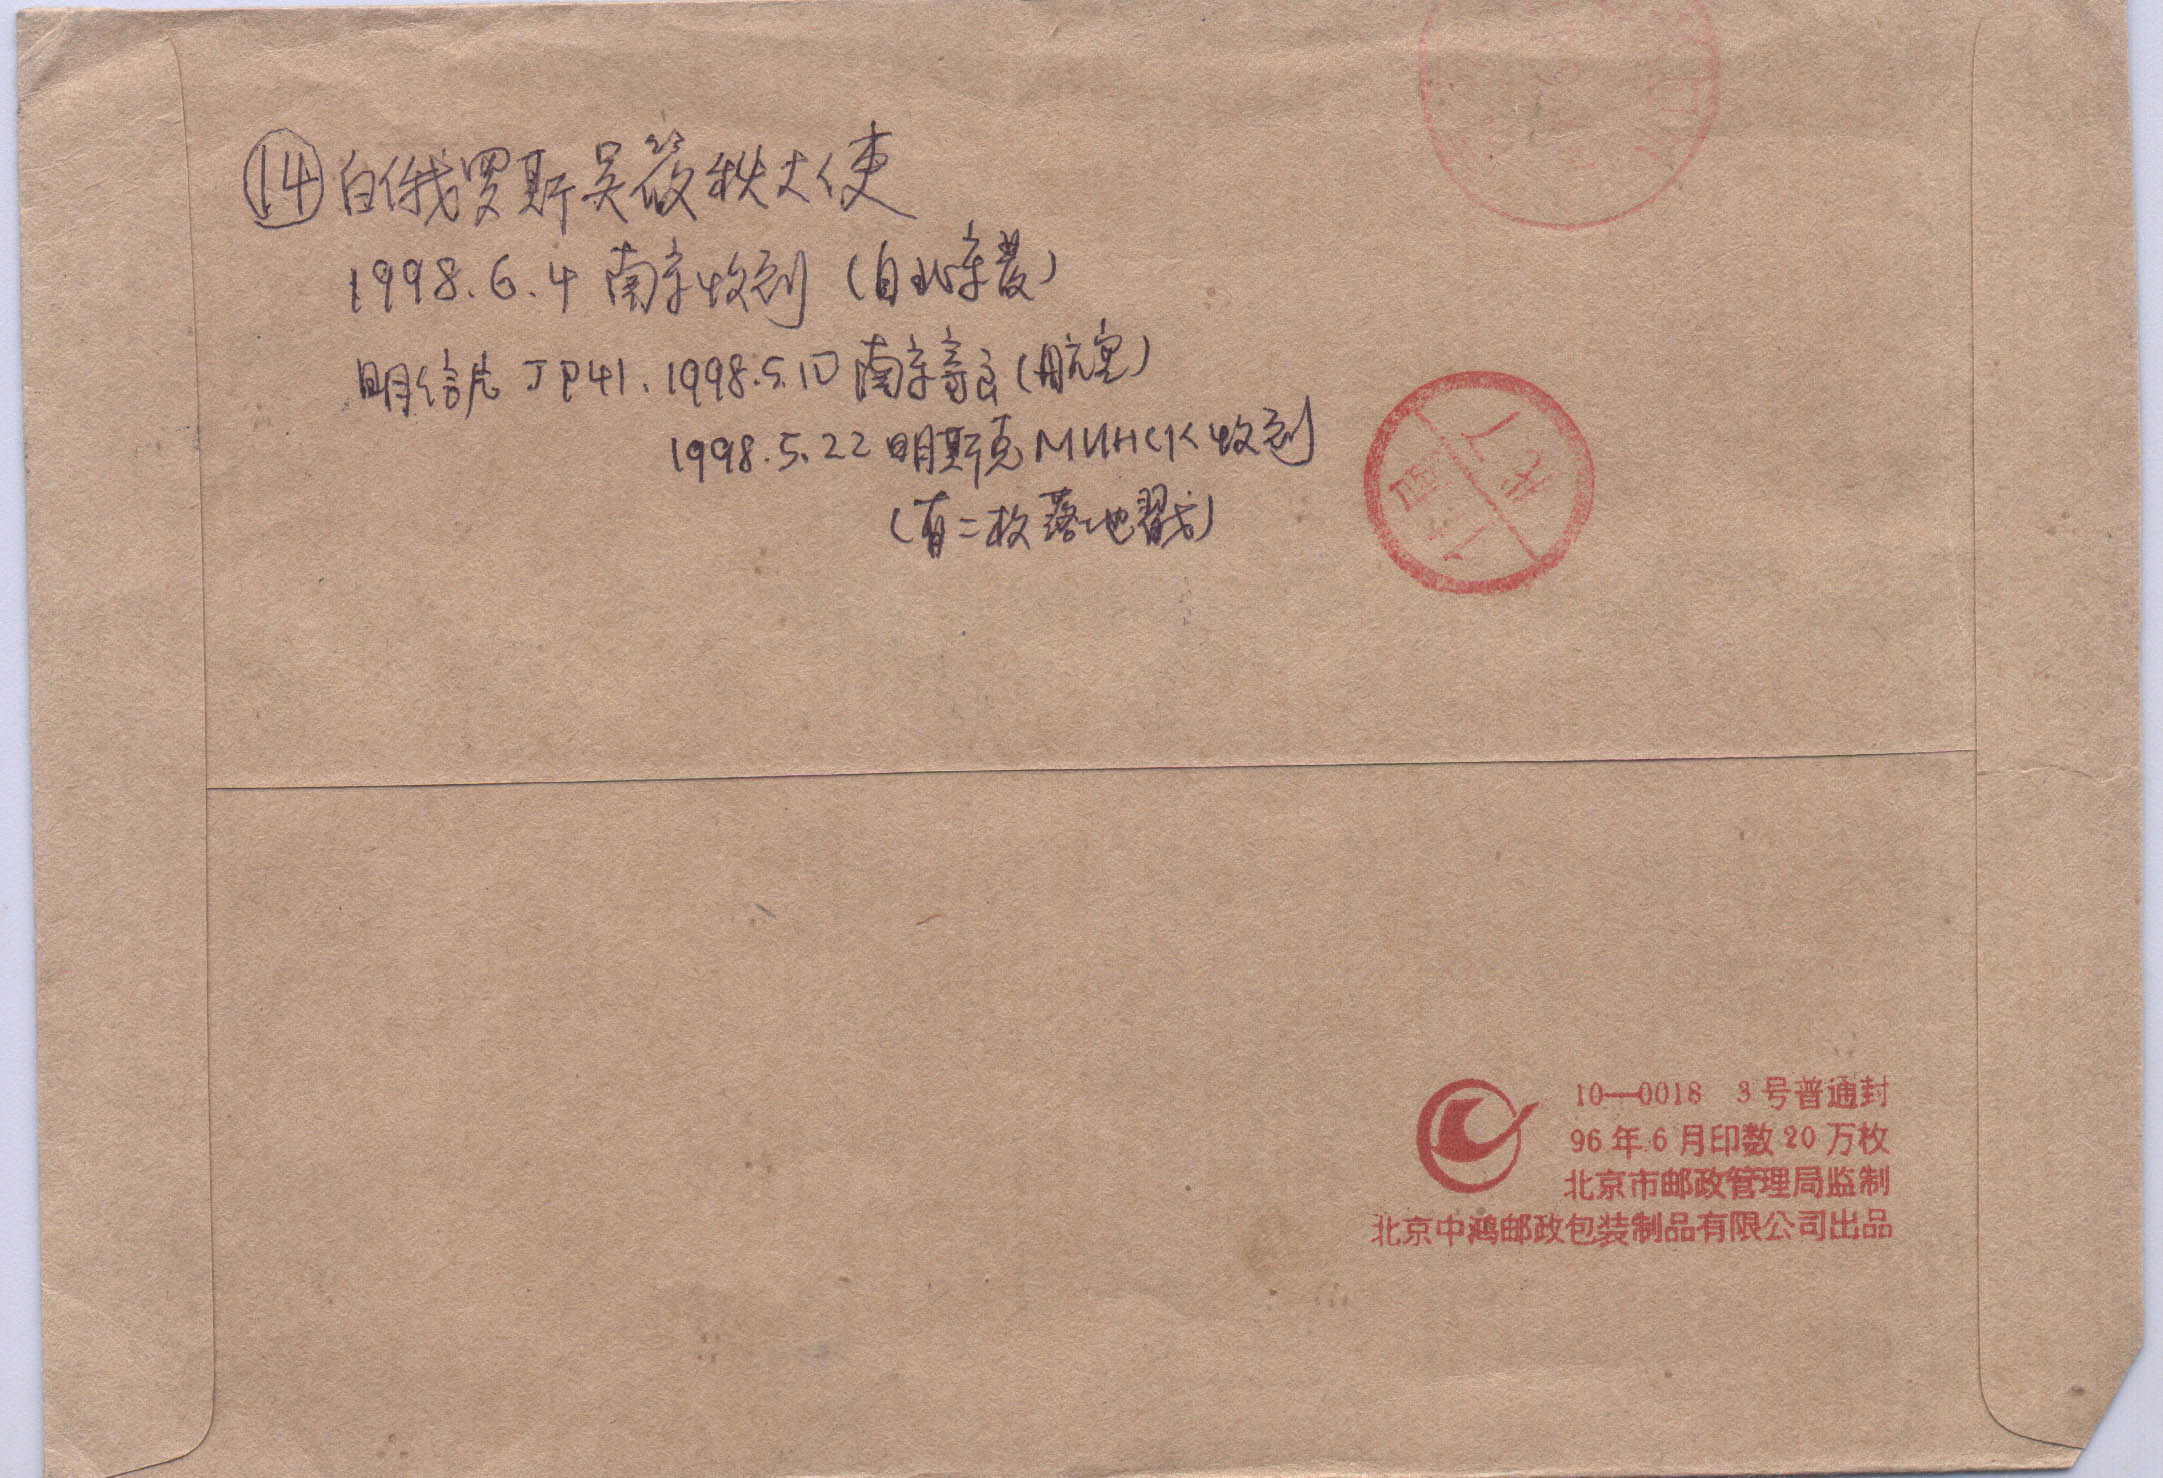 ⑭白俄罗斯吴筱秋大使
1998.6.4 南京收到（自北京发）
明信片 JP41. 1998.5.10 南京寄出（航空）
1998.5.22 明斯克МИНСК收到
（有二枚落地戳）
10—0018 3号普通封
96年6月印数20万枚
北京市邮政管理局监制
北京中鸿邮政包装制品有限公司出品